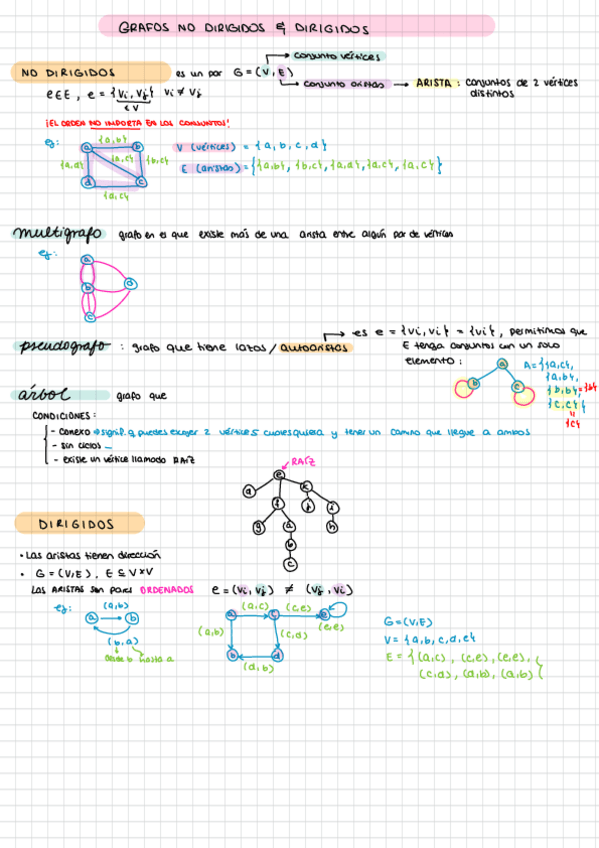 GRAFOS NO DIRIGIDOS & DIRIGIDOS
conjunto vértices
NO DIRIGIDOS es un par G=(V,E)
conjunto aristas → ARISTA: conjuntos de 2 vértices distintos
e∈E, e = {vi, vj} vi ≠ vj
∈V
¡EL ORDEN NO IMPORTA EN LOS CONJUNTOS!
eg:
{a,b}
a b
{a,d} {a,c} {b,c}
d c
{a,c}
V (vértices) = {a, b, c, d}
E (aristas) = {{a,b}, {b,c}, {a,d}, {a,c}, {a,c}}
multigrafo grafo en el que existe más de una arista entre algún par de vértices
eg:
a
b d
c
pseudografo : grafo que tiene lazos / autoaristas
es e = {vi, vi} = {vi}, permitimos que
E tenga conjuntos con un solo
elemento:
a
b c
A = {{a,c},
{a,b},
{b,b} = {b}
{c,c}}
=
{c}
árbol grafo que
CONDICIONES:
- Conexo → signif. q puedes escojer 2 vértices cualesquiera y tener un camino que llegue a ambos
- sin ciclos
- existe un vértice llamado RAÍZ
RAÍZ
e
a k
f j i
g d h
b
c
DIRIGIDOS
• Las aristas tienen dirección
• G = (V,E), E ⊆ V×V
LAS ARISTAS SON pares ORDENADOS e = (vi, vj) ≠ (vj, vi)
eg: (a,b)
a b
(b,a)
desde b hasta a
(a,c) (c,e)
a c e
(a,b) (c,d) (e,e)
b d
(d,b)
G = (V,E)
V = {a, b, c, d, e}
E = {(a,c), (c,e), (e,e),
(c,d), (d,b), (a,b)}